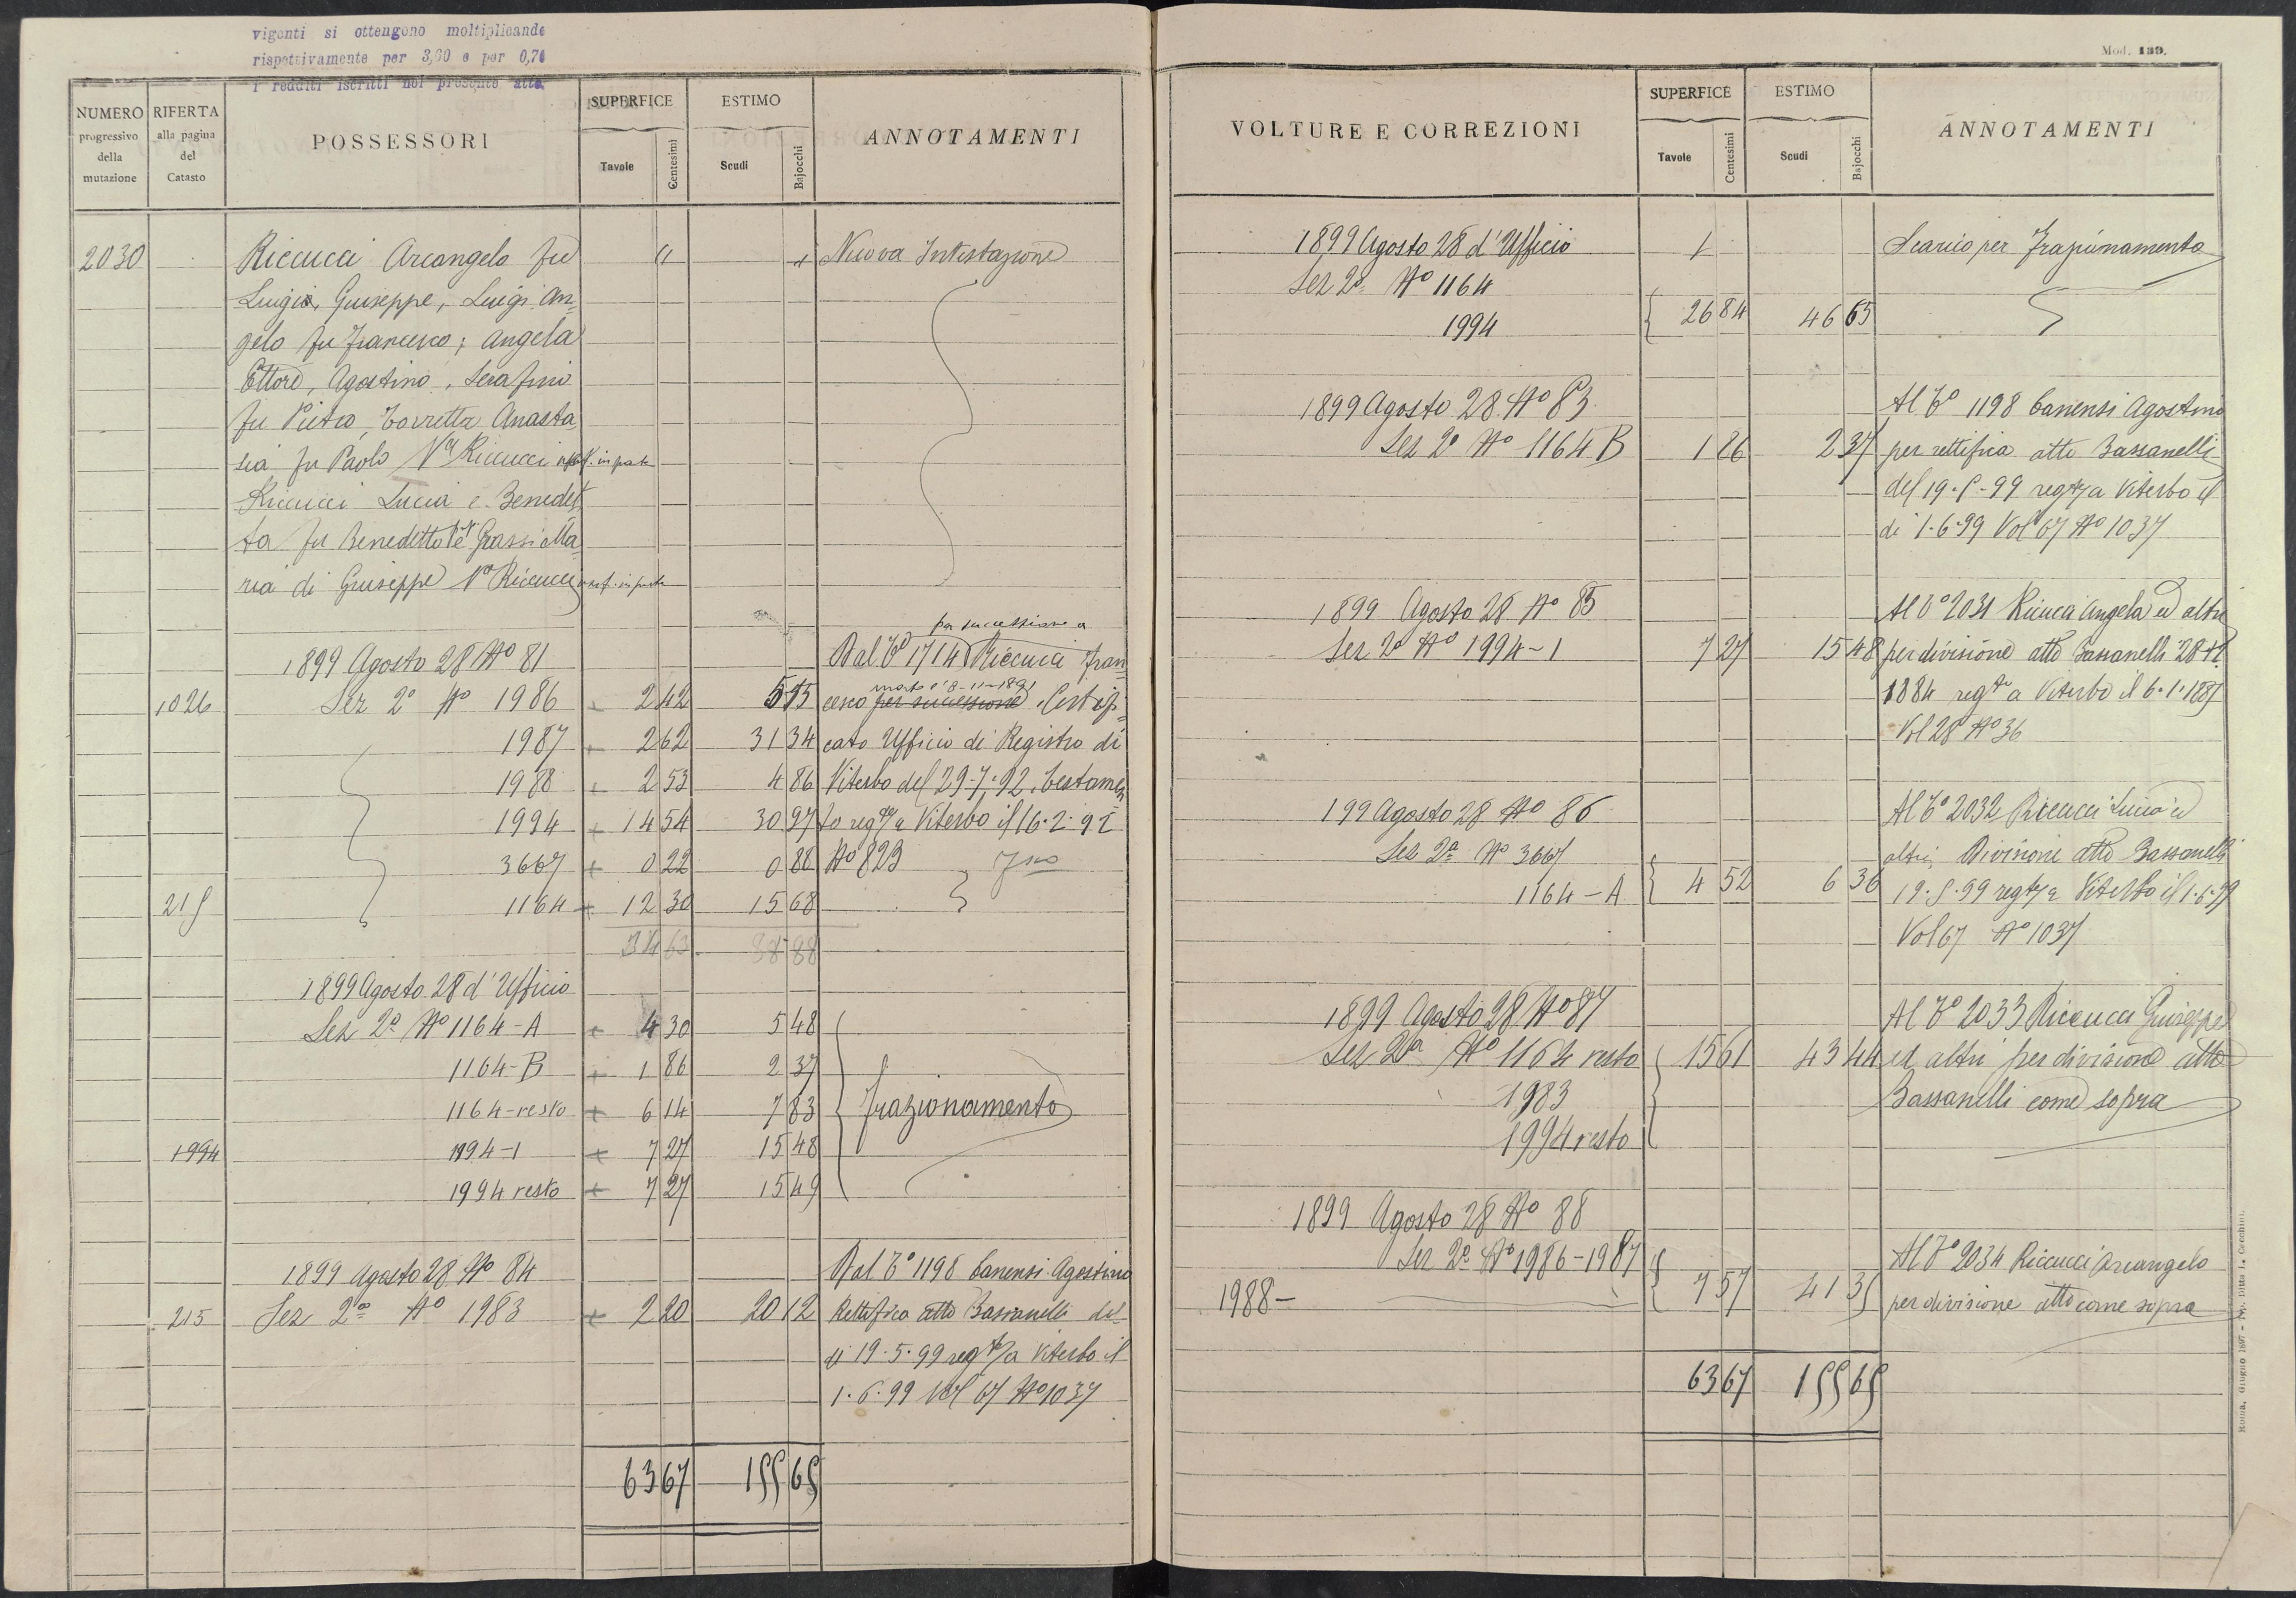 vigenti si ottengono moltiplicando
rispettivamente per 3,60 e per 0,74
i redditi iscritti nel presente atto.
NUMERO progressivo della mutazione
RIFERTA alla pagina del Catasto
POSSESSORI
SUPERFICE
Tavole
Centesimi
ESTIMO
Scudi
Bajocchi
ANNOTAMENTI
2030 Riccucci Arcangelo fu " " Nuova Intestazione
Luigi, Giuseppe, Luigi An-
gelo fu Francesco; Angela
Ettore, Agostino, Serafino
fu Pietro, Torretta Anasta
sia fu Paolo Va Riccucci usuf. in parte
Riccucci Lucia e Benedet
ta fu Benedetto e Grassi Ma
ria di Giuseppe Va Riccucci usuf. in parte
per successione a
1899 Agosto 28 No 81 Dal To 1714 Riccucci Fran
morto l'8-11-1891
1026 Sez 2a No 1986 + 2 42 5 15 cesco per successione. Certifi
1987 + 2 62 31 34 cato Ufficio di Registro di
1988 + 2 53 4 86 Viterbo del 29-7-92. Testamen
1994 + 14 54 30 97 to regto a Viterbo il 16.2.92
3667 + 0 22 0 88 No 823
215 1164 + 12 30 15 68
34 63 88 88
1899 Agosto 28 d'Ufficio
Sez 2a No 1164-A + 4 30 5 48
1164-B + 1 86 2 37
1164-resto + 6 14 7 83 Frazionamento
1994 1994-1 + 7 27 15 48
1994 resto + 7 27 15 49
1899 Agosto 28 No 84 Dal To 1198 Canensi Agostino
215 Sez 2a No 1983 + 2 20 20 12 Rettifica atto Bassanelli del
19.5.99 regto a Viterbo il
1.6.99 Vol 67 No 1037
63 67 155 65
Mod. 139.
VOLTURE E CORREZIONI
SUPERFICE
Tavole
Centesimi
ESTIMO
Scudi
Bajocchi
ANNOTAMENTI
1899 Agosto 28 d'Ufficio Scarico per Frazionamento
Sez 2a No 1164
1994 26 84 46 65
1899 Agosto 28 No 83 Al To 1198 Canensi Agostino
Sez 2a No 1164 B 1 86 2 37 per rettifica atto Bassanelli
del 19.5.99 regto a Viterbo il
di 1.6.99 Vol 67 No 1037
1899 Agosto 28 No 85 Al To 2031 Riccucci Angela ed altri
Sez 2a No 1994-1 7 27 15 48 per divisione atto Bassanelli 28
1884 regto a Viterbo il 6.1.1885
Vol 28 No 36
199 Agosto 28 No 86 Al To 2032 Riccucci Lucia ed
Sez 2a No 3667 altri, Divisione atto Bassanelli
1164-A 4 52 6 36 19.5.99 regto a Viterbo il 1.6.99
Vol 67 No 1037
1899 Agosto 28 No 87 Al To 2033 Riccucci Giuseppe
Sez 2a No 1164 resto 15 61 43 44 ed altri per divisione atto
1983 Bassanelli come sopra
1994 resto
1899 Agosto 28 No 88
Sez 2a No 1986-1987 Al To 2034 Riccucci Arcangelo
1988- 7 57 41 35 per divisione atto come sopra
63 67 155 65
Roma, Giugno 1897 - Tip. Ditta L. Cecchini.